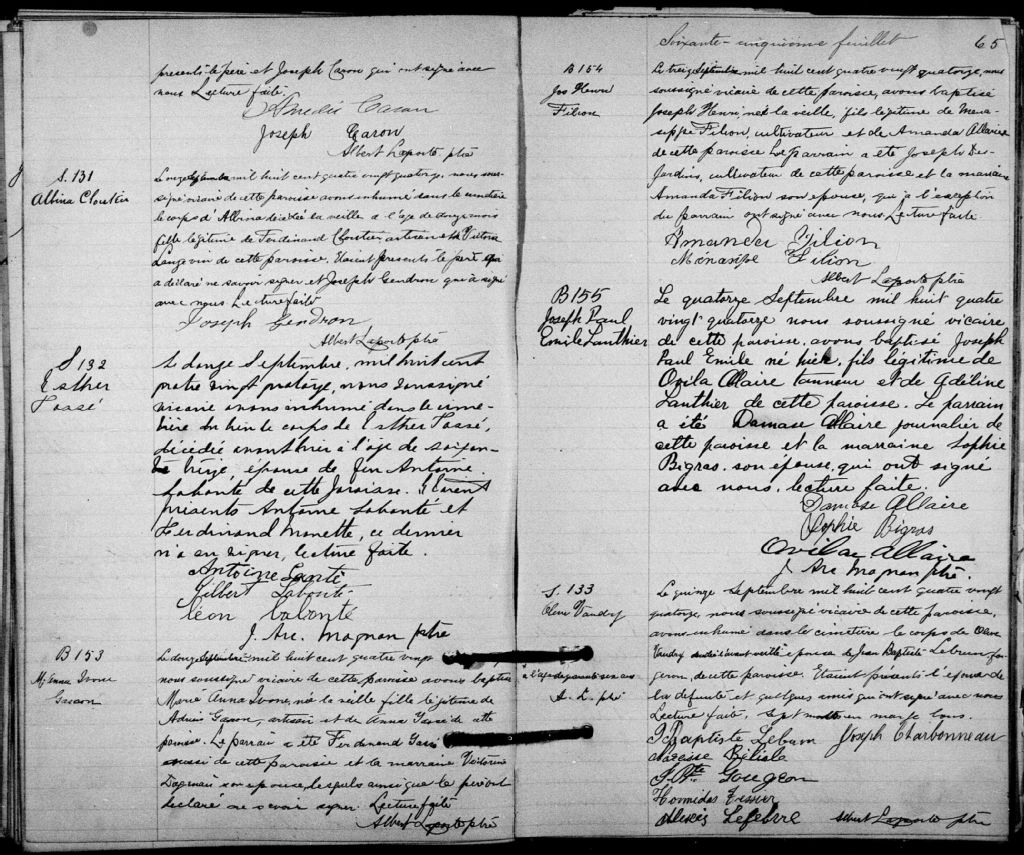 presents le père et Joseph Caron qui ont signé avec
nous Lecture faite.
Amedée Caron
Joseph Caron
Albert Laporte ptre
S. 131
Albina Cloutier
Le onze Septembre mil huit cent quatre vingt quatorze, nous sous-
signé vicaire de cette paroisse avons inhumé dans le cimetière
le corps d'Albina décédée la veille a l'age de douze mois
fille légitime de Ferdinand Cloutier artisan et de
Langevin de cette paroisse. Etaient presents le pere qui
a déclaré ne savoir signer et Joseph Gendron qui a signé
avec nous Lecture faite
Joseph Gendron
Albert Laporte ptre
S 132
Esther
Fossé
Le douze Septembre, mil huit cent
quatre vingt quatorze, nous soussigné
vicaire avons inhumé dans le cime-
tière du lieu le corps de Esther Fossé,
décédée avant hier à l'âge de soixan-
te treize, épouse de feu Antoine
Labonté de cette paroisse. Etaient
présents Antoine Labonté et
Ferdinand Monette, ce dernier
n'a su signer, lecture faite.
Antoine
Gilbert Labonté
Léon Labonté
J. Arc. Magnan ptre
B 153
M. Anna Ivone
Le douze Septembre mil huit cent quatre vingt
nous soussigné vicaire de cette paroisse avons baptisé
Marie Anna Ivone, née la veille fille légitime de
artisan et de Anna de cette
paroisse. Le parrain a été Ferdinand
de cette paroisse et la marraine
Dagenais son epouse, lesquels ainsi que le père ont
declaré ne savoir signer. Lecture faite
Albert Laporte ptre
Soixante-cinquième feuillet 65
B 154
Jos Henri
Filion
Le treize Septembre mil huit cent quatre vingt quatorze, nous
soussigné vicaire de cette paroisse, avons baptisé
Joseph Henri, né la veille, fils légitime de Mena-
sippe Filion, cultivateur et de Amanda Allaire
de cette paroisse Le parrain a été Joseph Des-
Jardins, cultivateur de cette paroisse et la marraine
Amanda Filion son epouse, qui à l'exception
du parrain ont signé avec nous Lecture faite.
Amanda Filion
Menasipe Filion
Albert Laporte ptre
B155
Joseph Paul
Emile Lanthier
Le quatorze Septembre mil huit quatre
vingt quatorze nous soussigné vicaire
de cette paroisse, avons baptisé Joseph
Paul Emile né hier, fils légitime de
Ovila Allaire tanneur et de Adéline
Lanthier de cette paroisse. Le parrain
a été Damase Allaire journalier de
cette paroisse et la marraine Sophie
Bigras, son épouse, qui ont signé
avec nous, lecture faite.
Damase Allaire
Sophie Bigras
Ovila Allaire
J. Arc Magnan ptre.
S. 133
Olive Vaudry
à l'age de quarante six ans
A. L. ptre
Le quinze Septembre mil huit cent quatre vingt
quatorze, nous soussigné vicaire de cette paroisse,
avons inhumé dans le cimetière le corps de Olive
Vaudry décédée l'avant veille epouse de Jean Baptiste Lebrun, for-
geron, de cette paroisse. Etaient présents l'époux de
la defunte et quelques amis qui ont signé avec nous
Lecture faite. Sept mots en marge bons.
J Baptiste Lebrun Joseph Charbonneau
Narcisse Bélisle
J. Bte Gougeon
Homidas Tessier
Alexis Lefebvre Albert Laporte ptre